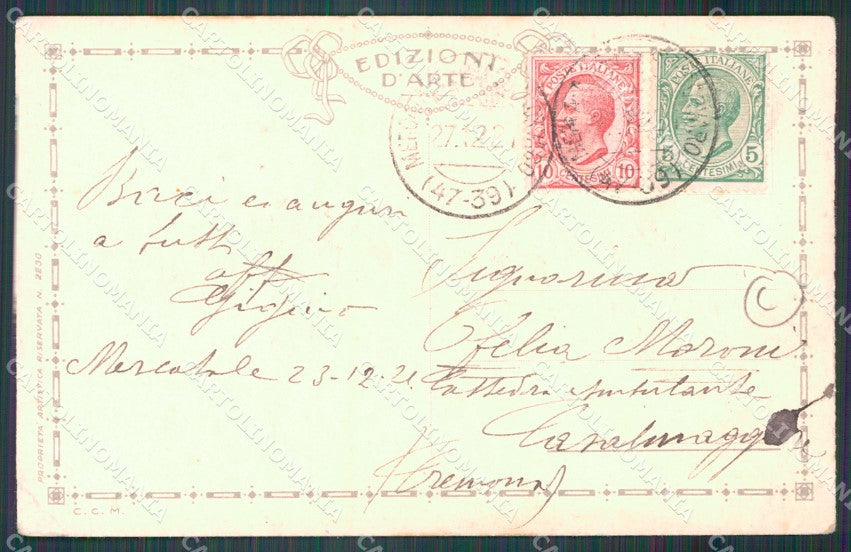 EDIZIONI
D'ARTE
POSTE ITALIANE
10 CENTESIMI 10
POSTE ITALIANE
5 CENTESIMI 5
(47-39)
(47-39)
Baci ed auguri
a tutti
aff
Gigino
Mercatale 23-12-21
Signorina
Ofelia Moroni
Cattedra Ambulante
Casalmaggiore
(Cremona)
C
PROPRIETÀ ARTISTICA RISERVATA N. 2230
C. C. M.
CARTOLINOMANIA